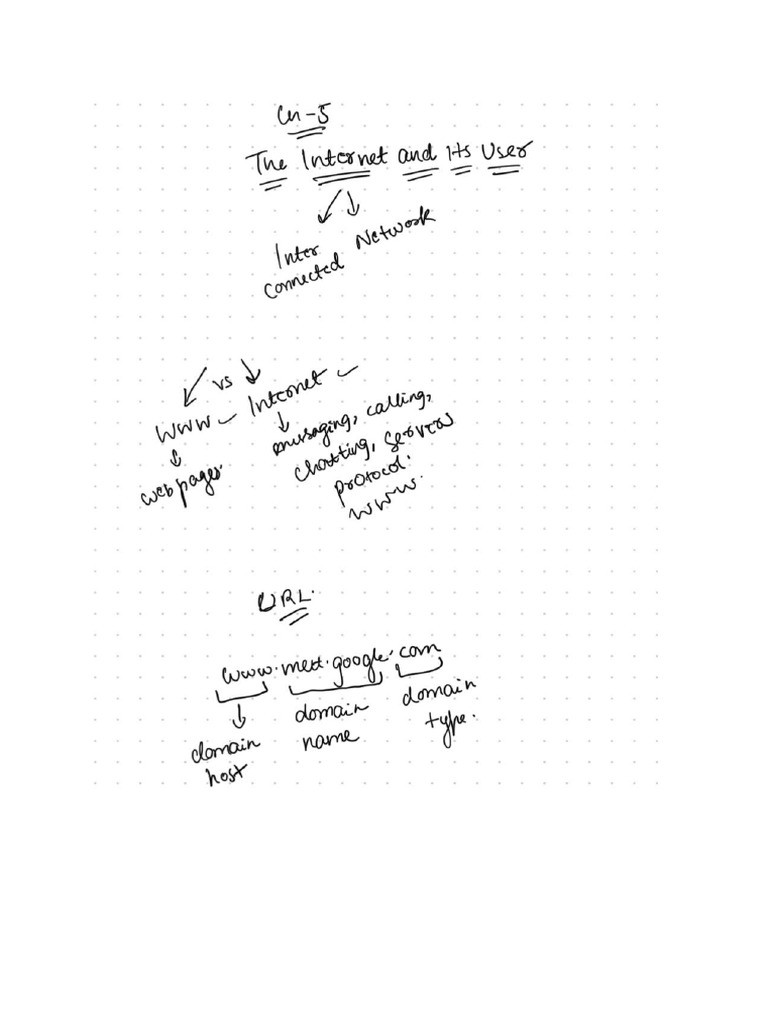 Ch-5
The Internet and Its User
Inter connected
Network
vs
WWW
Internet
web pages.
messaging, calling,
chatting, servers
protocol.
WWW.
URL.
www.meet.google.com
domain host
domain name
domain type.